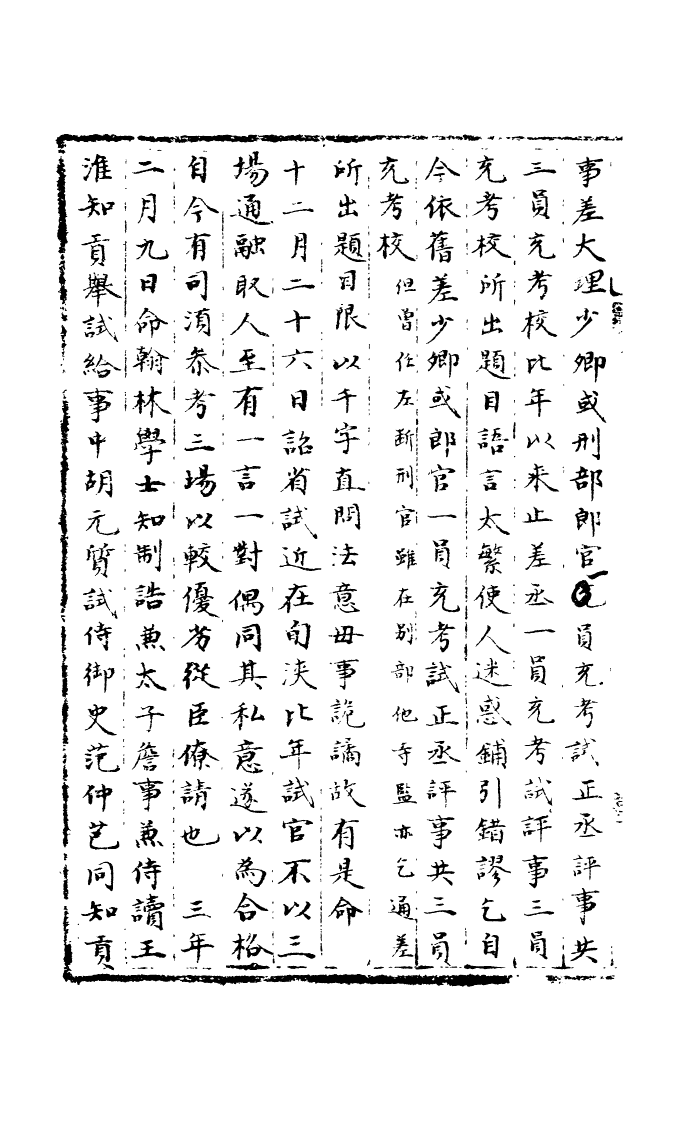 事差大理少卿或刑部郎官一員充考試正丞評事共
三員充考校比年以來止差丞一員充考試評事三員
充考校所出題目語言太繁使人迷惑鋪引錯謬乞自
今依舊差少卿或郎官一員充考試正丞評事共三員
充考校但曾任左斷刑官雖在別部他寺監亦乞通差
所出題目限以千字直問法意毋事詭譎故有是命
十二月二十六日詔省試近在旬浹比年試官不以三
場通融取人至有一言一對偶同其私意遂以為合格
自今有司須叅考三場以較優劣從臣僚請也　三年
二月九日命翰林學士知制誥兼太子詹事兼侍讀王
淮知貢舉試給事中胡元質試侍御史范仲芑同知貢